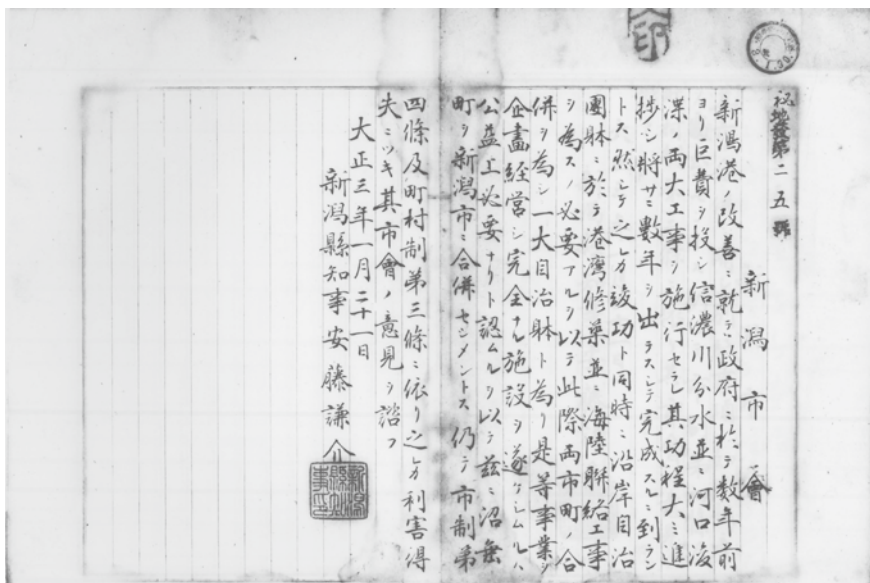 秘地發第二五號
新潟市會
新潟港ノ改善ニ就テ政府ニ於テ数年前
ヨリ巨費ヲ投シ信濃川分水並ニ河口浚
渫ノ両大工事ヲ施行セラレ其功程大ニ進
捗シ將サニ数年ヲ出テスシテ完成スルニ到ラン
トス然シテ之レカ竣功ト同時ニ沿岸自治
團躰ニ於テ港灣修築並ニ海陸聯絡工事
ヲ為スノ必要アルヲ以テ此際両市町ノ合
併ヲ為シ一大自治躰ト為リ是等事業ヲ
企畫経営シ完全ナル施設ヲ遂ケシムルハ
公益上必要ナリト認ムルヲ以テ茲ニ沼垂
町ヲ新潟市ニ合併セシメントス仍テ市制第
四條及町村制第三條ニ依リ之レカ利害得
失ニツキ其市會ノ意見ヲ諮フ
大正三年一月二十一日
新潟縣知事安藤謙介
新潟縣知事印